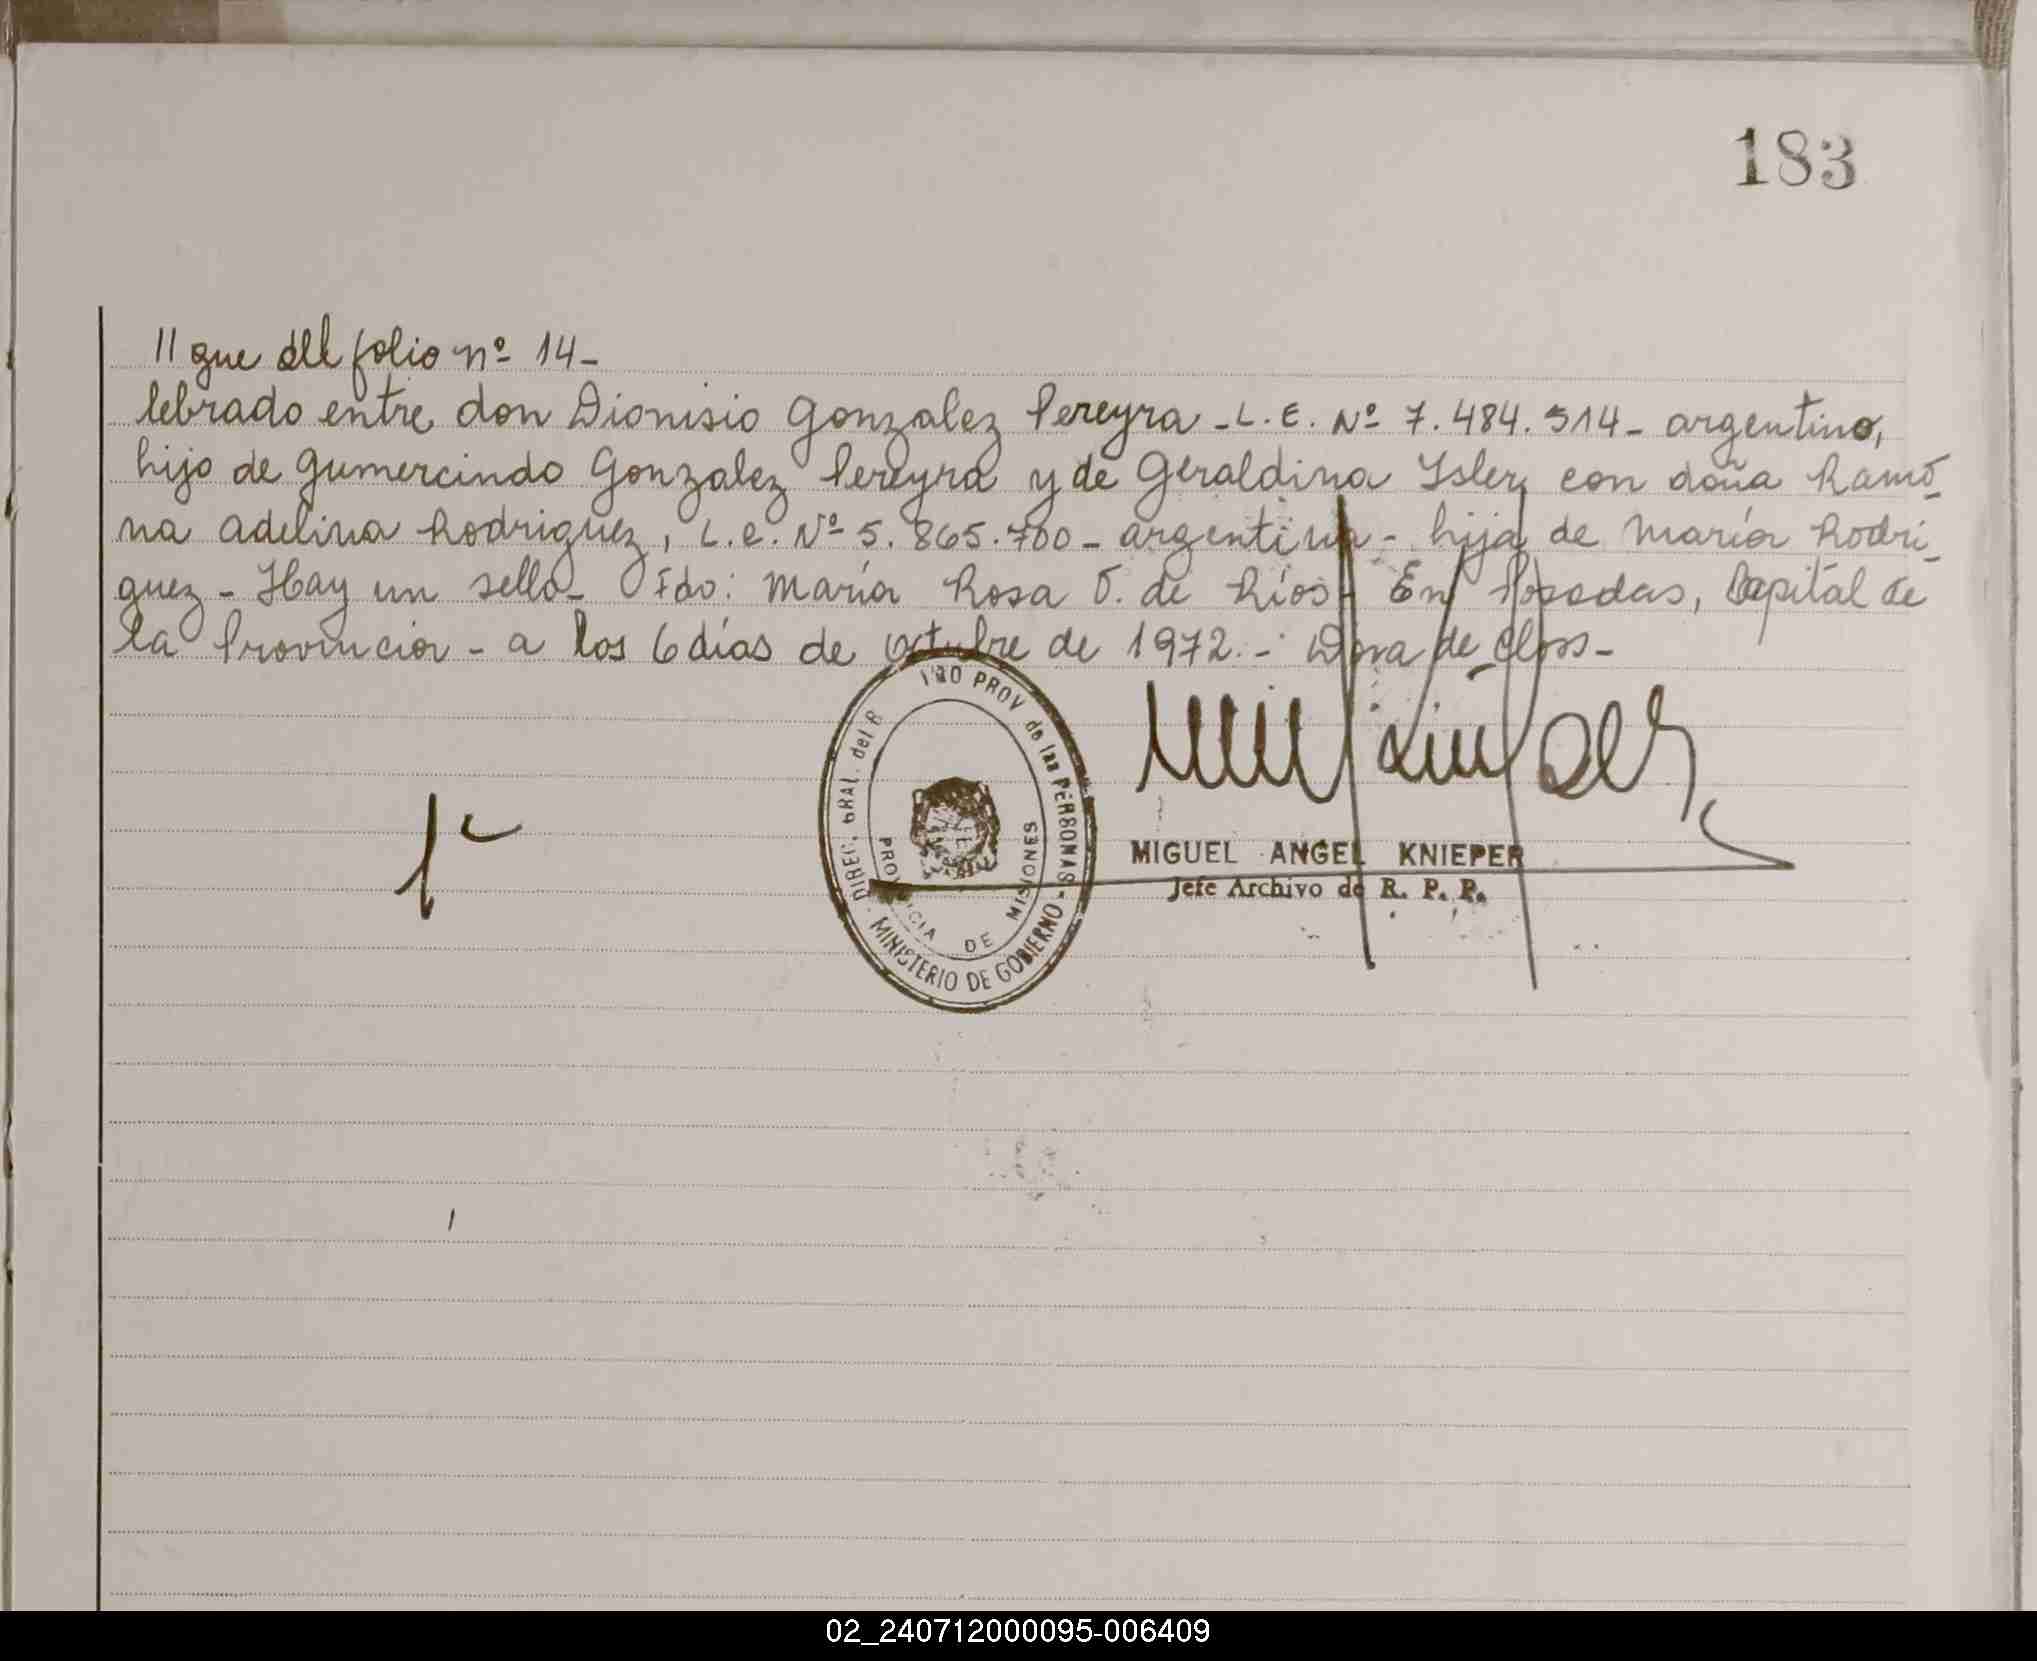 183
// gue del folio nº 14-
lebrado entre don Dionisio Gonzalez Pereyra - L.E. Nº 7.484.314- argentino,
hijo de Gumercindo Gonzalez Pereyra y de Geraldina Isler, con doña Ramo-
na Adelina Rodriguez, L.C. Nº 5.865.700- argentina - hija de María Rodri-
guez - Hay un sello - Fdo: María Rosa O. de Ríos - En Posadas, Capital de
la Provincia - a los 6 días de octubre de 1972.- Dora de Closs-
DIREC. GRAL. del R PROV de las PERSONAS - MINISTERIO DE GOBIERNO
PROVINCIA DE MISIONES
MIGUEL ANGEL KNIEPER
Jefe Archivo de R. P. P.
02_240712000095-006409